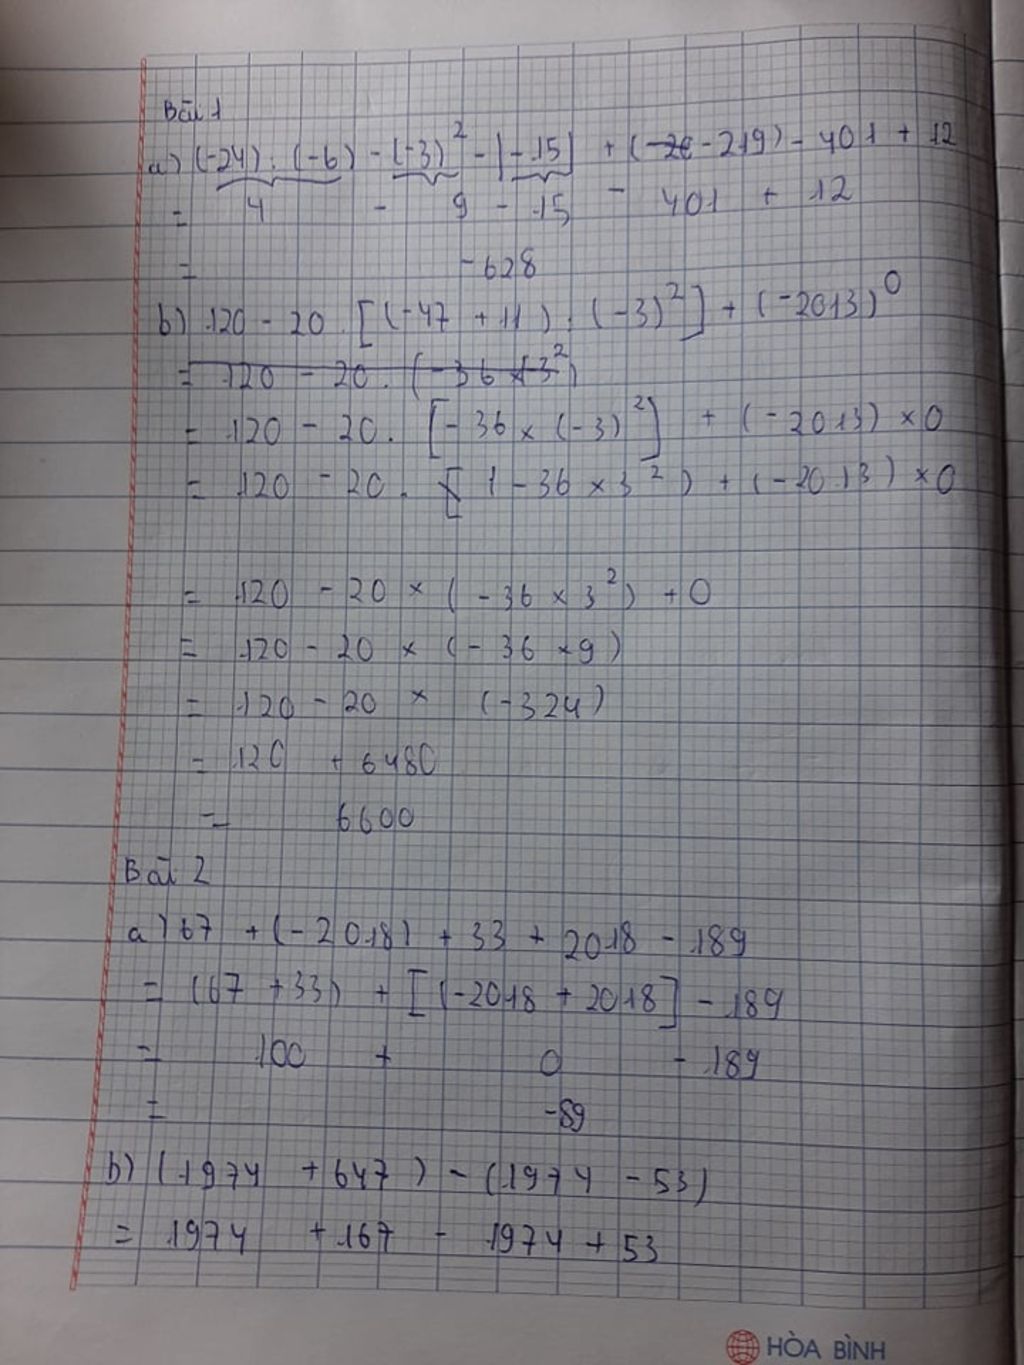 Bài 1
a) (-24) : (-6) - (-3)² - |-15| + (-219) - 401 + 12
= 4 - 9 - 15 - 401 + 12
= -628
b) 120 - 20 . [(-47 + 11) . (-3)²] + (-2013)⁰
= 120 - 20 . (-36 × 3²)
= 120 - 20 . [-36 × (-3)²] + (-2013) × 0
= 120 - 20 . (-36 × 3²) + (-2013) × 0
= 120 - 20 × (-36 × 3²) + 0
= 120 - 20 × (-36 × 9)
= 120 - 20 × (-324)
= 120 + 6480
= 6600
Bài 2
a) 67 + (-2018) + 33 + 2018 - 189
= (67 + 33) + [(-2018 + 2018] - 189
= 100 + 0 - 189
= -89
b) (1974 + 647) - (1974 - 53)
= 1974 + 167 - 1974 + 53
HÒA BÌNH